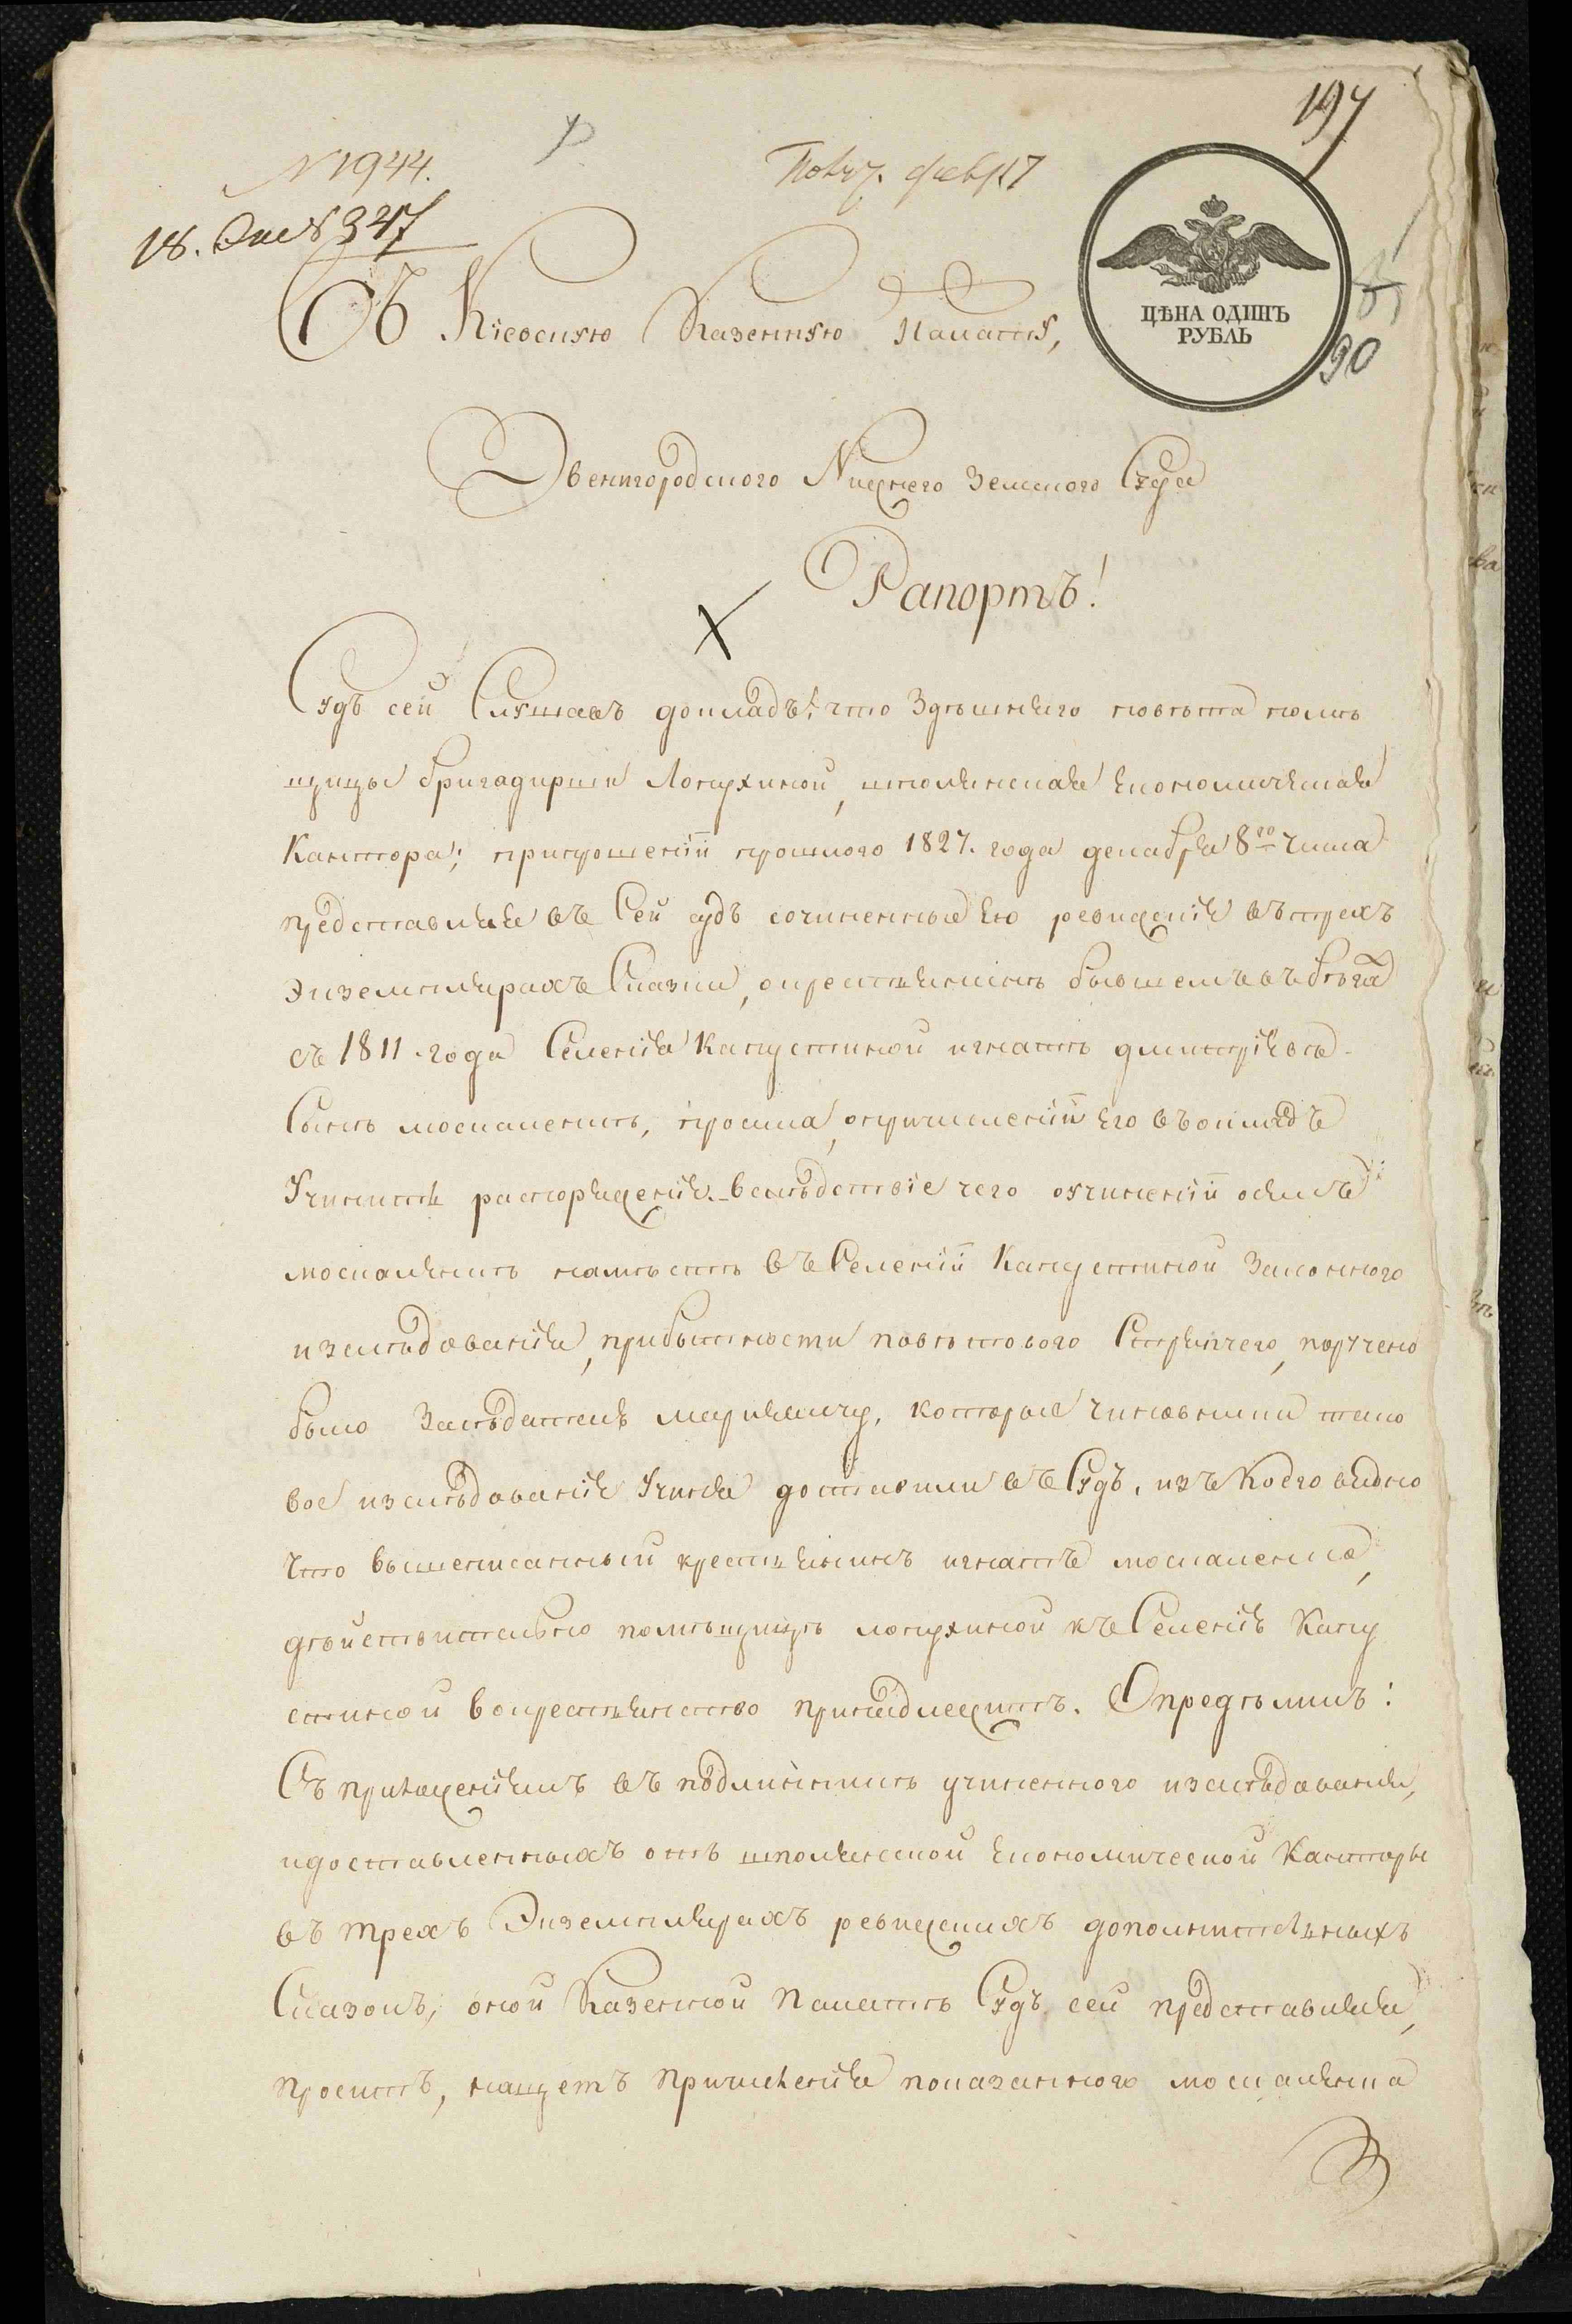 197
N 1944.
Получ. февр 17
18. Эк N 347
ЦѢНА ОДИНЪ
РУБЛЬ
90
Въ Кіевскую Казенную Палату,
Звенигородского Нижнего Земского Суда
Рапортъ!
Судъ сей Слушавъ докладъ: что Здѣшняго повѣта помѣ
щицы бригадирши Лопухиной, шполянская Економическая
Кантора; припрошеніи прошлого 1827. года декабря 8го числа
представляя въ Сей судъ сочиненные Ею ревижскіе въ трехъ
Экземплярахъ Сказки, окрестьянинѣ бывшемъ въ бѣгах
съ 1811. года Селенія Капустиной игнатѣ дмитріевѣ
Сынѣ москаленкѣ, просила, опричисленіи Его въ окладъ
Учинить распоряженіе. – вслѣдствіе чего оучиненіи осемъ
москаленкѣ намѣстѣ въ Селеніи Капустиной Законного
изслѣдованія, прибытности повѣтового Стряпчего, поручено
было Засѣдателю , которые чиновники тако
вое изслѣдованіе Учиня доставили въ Судъ, изъ Коего видно
Что вышеписанный крестьянинъ игнатъ москаленко,
дѣйствительно помѣщицѣ лопухиной къ Селенію Капу
стиной вокрестьянство принадлежитъ. Опредѣлилъ:
Съ приложеніемъ въ подлинникѣ учиненного изслѣдованія,
идоставленныхъ отъ шполянской Економической Канторы
въ трехъ Экземплярахъ ревижскихъ дополнительныхъ
Сказокъ, оной Казенной Палатѣ Судъ сей представляя,
проситъ, нащетъ причисленія показанного москаленка